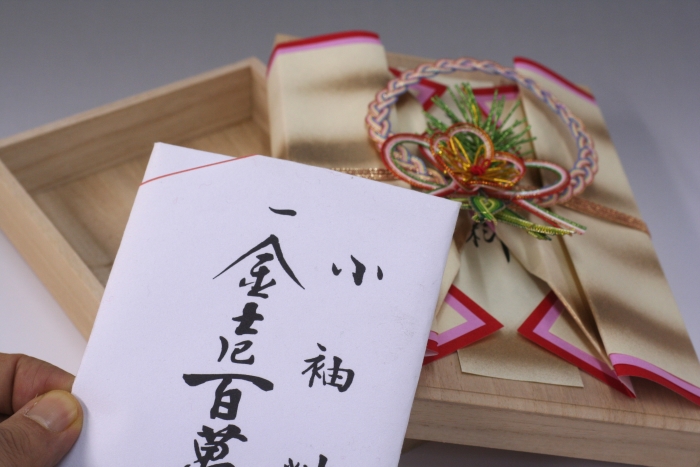 小袖料
一金壱百萬